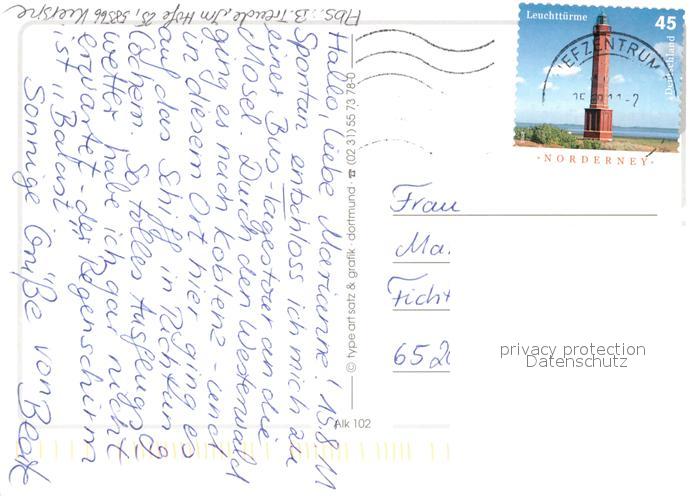 Abs.: B. Treude, Im Hofe 25, 58566 Kierspe
Hallo, liebe Marianne! 15.8.11
Spontan entschloss ich mich zu
einer Bus-Tagestour an die
Mosel. Durch den Westerwald
ging es nach Koblenz - und
in diesem Ort hier ging es
auf das Schiff in Richtung
Cochem. So tolles Ausflugs-
wetter habe ich gar nicht
erwartet - der Regenschirm
ist "Balast"
Sonnige Grüße von Beate
© type art satz & grafik · dortmund · ☎ (02 31) 55 73 78-0
Alk 102
Leuchttürme 45
Deutschland
·NORDERNEY·
EFZENTRUM
Frau
Ma.
Ficht
652
privacy protection
Datenschutz